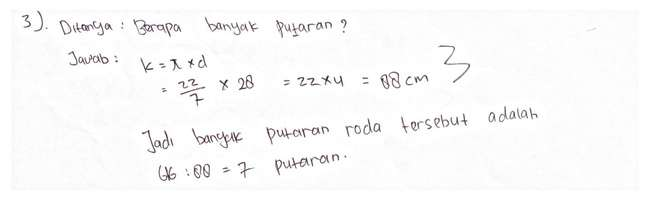 3). Ditanya : Berapa banyak putaran ?
Jawab : k = π x d
= 22/7 x 28 = 22x4 = 88 cm 3
Jadi banyak putaran roda tersebut adalah
616 : 88 = 7 putaran.